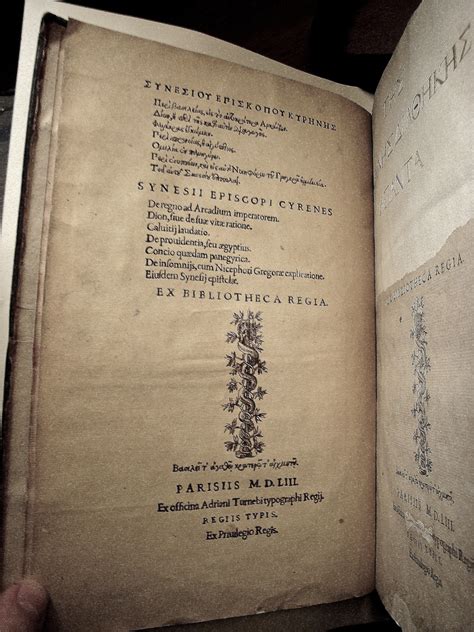 ΣΥΝΕΣΙΟΥ ΕΠΙΣΚΟΠΟΥ ΚΥΡΗΝΗΣ
Περὶ βασιλείας, εἰς τὸν αὐτοκράτορα Ἀρκάδιον.
Δίων, ἢ περὶ τῆς κατ' αὐτὸν
Φαλάκρας ἐγκώμιον.
Περὶ προνοίας, ἢ
Ὁμιλία
Περὶ ἐνυπνίων,
Τοῦ αὐτοῦ Συνεσίου ἐπιστολαί.
SYNESII EPISCOPI CYRENES
De regno ad Arcadium imperatorem.
Dion, siue de suæ vitæ ratione.
Caluitij laudatio.
De prouidentia, seu ægyptius.
Concio quædam panegyrica.
De insomnijs, cum Nicephori Gregoræ explicatione.
Eiusdem Synesij epistolæ.
EX BIBLIOTHECA REGIA.
Βασιλεῖ τ' ἀγαθῷ κρατερῷ τ' αἰχμητῇ.
PARISIIS M. D. LIII.
Ex officina Adriani Turnebi typographi Regij.
REGIIS TYPIS.
Ex Priuilegio Regis.
BIBLIOTHECA REGIA